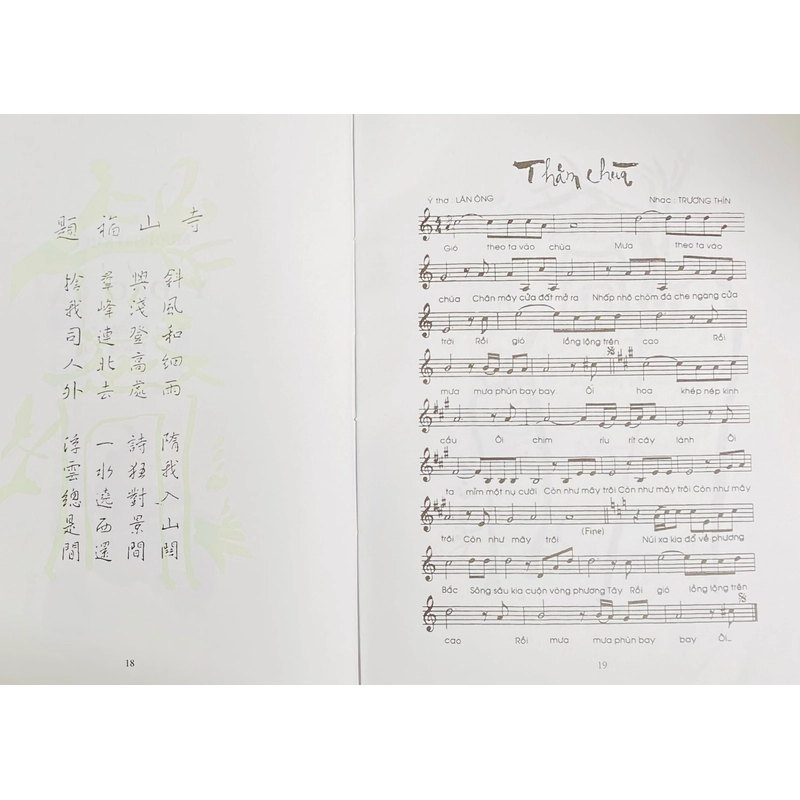 題福山寺
斜風和細雨 隋我入山
與淺登高處 詩狂對景間
羣峰連北去 一水遶西還
捨我司人外 浮雲總是間
18
Thăm chùa
Ý thơ : LÃN ÔNG Nhạc : TRƯƠNG THÌN
Gió theo ta vào chùa Mưa theo ta vào
chùa Chân mây cửa đất mở ra Nhấp nhô chòm đá che ngang cửa
trời Rồi gió lồng lộng trên cao Rồi
mưa mưa phùn bay bay Ôi hoa khép nép kinh
cầu Ôi chim ríu rít cây lành Ôi
ta mỉm một nụ cười Còn như mây trôi Còn như mây trôi Còn như mây
trôi Còn như mây trôi (Fine) Núi xa kia đổ về phương
Bắc Sông sâu kia cuộn vòng phương Tây Rồi gió lồng lộng trên
cao Rồi mưa mưa phùn bay bay Ôi...
19